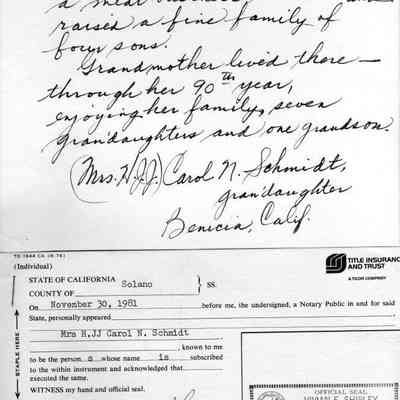 raised a fine family of
four sons.
Grandmother lived there —
through her 90th year,
enjoying her family, seven
grandaughters and one grandson.
(Mrs. H.J.J.) Carol N. Schmidt,
grandaughter
Benicia, Calif.
TO 1944 CA (8-74)
(Individual)
TITLE INSURANCE
AND TRUST
A TICOR COMPANY
STATE OF CALIFORNIA
COUNTY OF Solano } SS.
On November 30, 1981 before me, the undersigned, a Notary Public in and for said
State, personally appeared
Mrs H.JJ Carol N. Schmidt
, known to me
to be the person s whose name is subscribed
to the within instrument and acknowledged that
executed the same.
WITNESS my hand and official seal.
STAPLE HERE
OFFICIAL SEAL
VIVIAN E. SHIPLEY